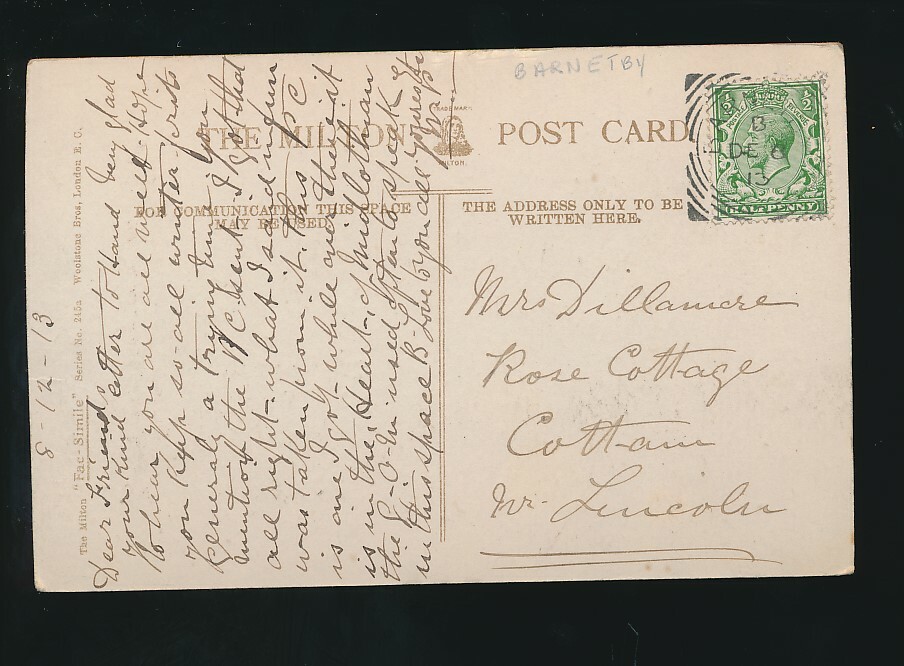 BARNETBY
THE MILTON
TRADE MARK
MILTON.
POST CARD
FOR COMMUNICATION THIS SPACE
MAY BE USED
THE ADDRESS ONLY TO BE
WRITTEN HERE.
B
DE 8
13
HALFPENNY
Mrs Dillamere
Rose Cottage
Cottam
Nr. Lincoln
The Milton "Fac-Simile" Series No. 245a Woolstone Bros, London E. C.
8-12-13
Dear Friends
your kind letter to Hand very glad
to hear you are all well Hope
you Keep so-all winter-for its
Generaly a trying time. you
mention the P C sent I got that
all right. what I said in fun
was taken from it. this P C
is one I got while over there it
is in the, Heart of Midlothian
the P-O-M-used often to speak of
in this space B-Love to you all yours